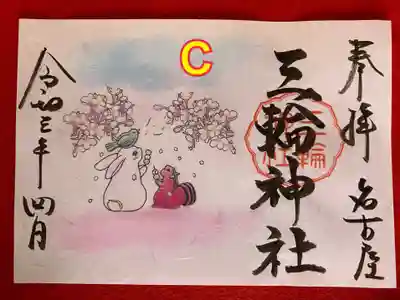 奉拝 名古屋
三輪神社
三輪神社
C
令和三年 四月